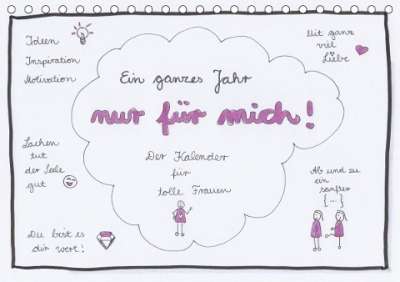 Ideen
Inspiration
Motivation
Mit ganz
viel
Liebe
Ein ganzes Jahr
nur für mich!
Der Kalender
für
tolle Frauen
Lachen
tut
der Seele
gut
Ab und zu
ein
sanfter
(...)
Du bist es
dir wert!